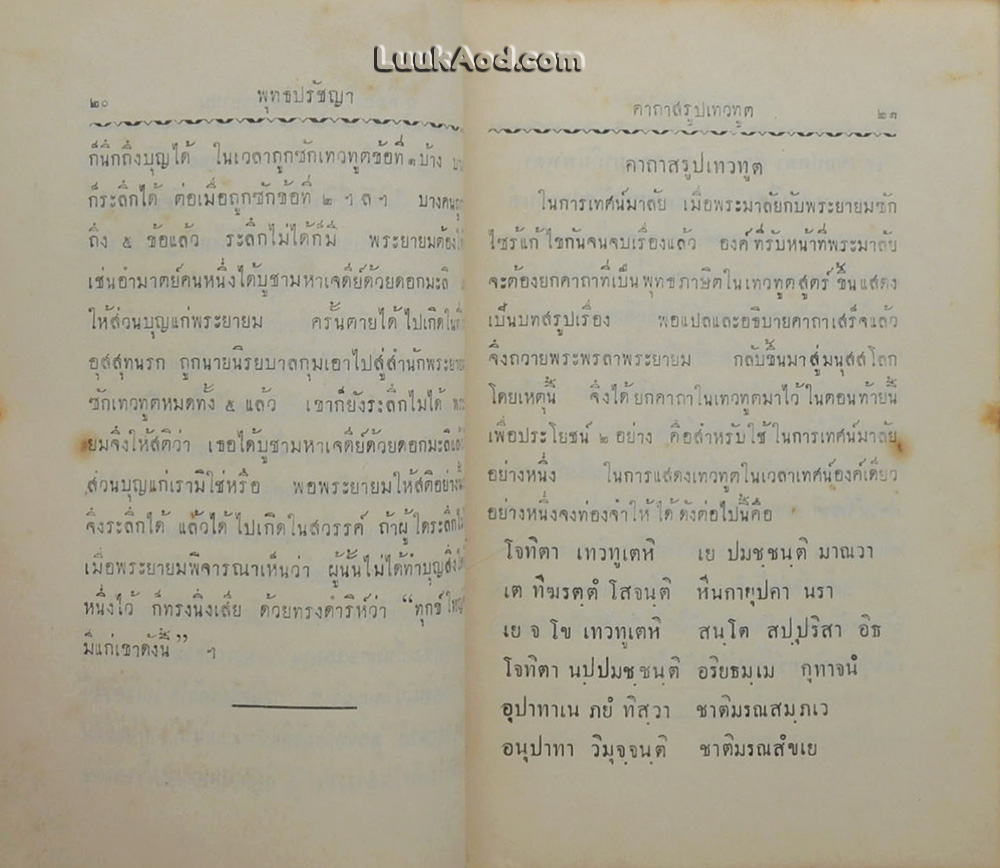 LuukAod.com
๒๐ พุทธปรัชญา
ก็นึกถึงบุญได้ ในเวลาถูกซักเทวทูตข้อที่ ๑ บ้าง
ก็ระลึกได้ ต่อเมื่อถูกซักข้อที่ ๒ ฯ ล ฯ บางคน
ถึง ๕ ข้อแล้ว ระลึกไม่ได้ก็มี พระยายมต้อง
เช่นอำมาตย์คนหนึ่งได้บูชามหาเจดีย์ด้วยดอกมะลิ
ให้ส่วนบุญแก่พระยายม ครั้นตายได้ไปเกิดใน
อุสสุทนรก ถูกนายนิรยบาลกุมเอาไปสู่สำนักพระยายม
ซักเทวทูตหมดทั้ง ๕ แล้ว เขาก็ยังระลึกไม่ได้
ยมจึงให้สติว่า เธอได้บูชามหาเจดีย์ด้วยดอกมะลิ
ส่วนบุญแก่เรามิใช่หรือ พอพระยายมให้สติอย่าง
จึงระลึกได้ แล้วได้ไปเกิดในสวรรค์ ถ้าผู้ใดระลึก
เมื่อพระยายมพิจารณาเห็นว่า ผู้นั้นไม่ได้ทำบุญสิ่ง
หนึ่งไว้ ก็ทรงนิ่งเสีย ด้วยทรงดำริห์ว่า “ทุกข์
มีแก่เขาดังนี้” ฯ
คาถาสรูปเทวทูต ๒๑
คาถาสรูปเทวทูต
ในการเทศน์มาลัย เมื่อพระมาลัยกับพระยายมซัก
ไซร้แก้ไขกันจนจบเรื่องแล้ว องค์ที่รับหน้าที่พระมาลัย
จะต้องยกคาถาที่เป็นพุทธภาษิตในเทวทูตสูตร์ ขึ้นแสดง
เป็นบทสรูปเรื่อง พอแปลและอธิบายคาถาเสร็จแล้ว
จึงถวายพระพรลาพระยายม กลับขึ้นมาสู่มนุสสโลก
โดยเหตุนี้ จึงได้ยกคาถาในเทวทูตมาไว้ในตอนท้ายนี้
เพื่อประโยชน์ ๒ อย่าง คือสำหรับใช้ในการเทศน์มาลัย
อย่างหนึ่ง ในการแสดงเทวทูตในเวลาเทศน์องค์เดียว
อย่างหนึ่งจงท่องจำให้ได้ ดังต่อไปนี้คือ
โจทิตา เทวทูเตหิ เย ปมชฺชนฺติ มาณวา
เต ทีฆรตฺตํ โสจนฺติ หีนกายูปคา นรา
เย จ โข เทวทูเตหิ สนฺโต สปฺปุริสา อิธ
โจทิตา นปฺปมชฺชนฺติ อริยธมฺเม กุทาจนํ
อุปาทาเน ภยํ ทิสฺวา ชาติมรณสมฺภเว
อนุปาทา วิมุจฺจนฺติ ชาติมรณสํขเย